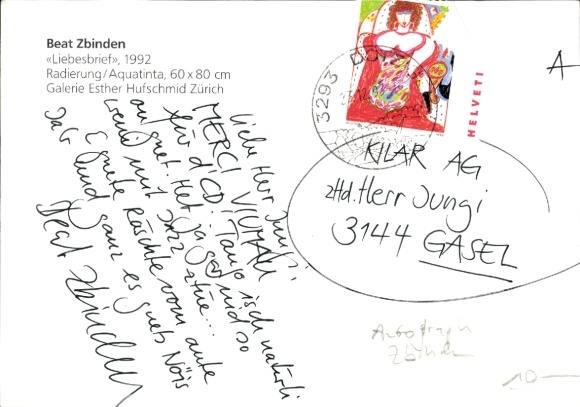 Beat Zbinden
«Liebesbrief», 1992
Radierung/Aquatinta, 60 x 80 cm
Galerie Esther Hufschmid Zürich
liebe Herr Jungi,
MERCI VIUMAU
für d'CD! Tango isch natürli
ou guet. Het ja gar nid so
weni mit Jazz z'tüe...
E guete Rütsch vom aute
Jahr und ganz es guets Nöis
Beat Zbinden
3293 DO
HELVETI
A
KILAR AG
zHd. Herr Jungi
3144 GASEL
Autogramm
Zbinden
10.—